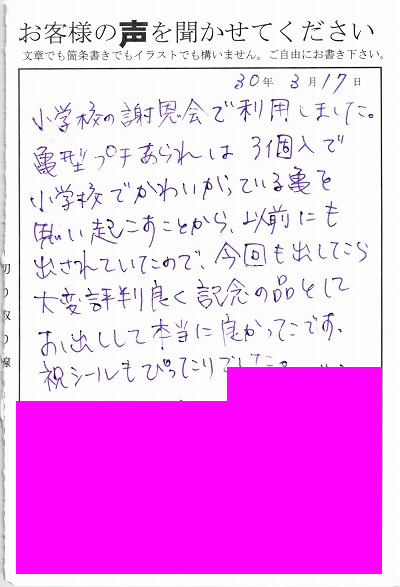 お客様の声を聞かせてください
文章でも箇条書きでもイラストでも構いません。ご自由にお書き下さい。
30年 3月17日
小学校の謝恩会で利用しました。
亀型プチあられは 3個入で
小学校でかわいがっている亀を
思い起こすことから、以前にも
出されていたので、今回も出したら
大変評判良く記念の品として
お出しして本当に良かったです。
祝シールもぴったりでした。
切り取り線